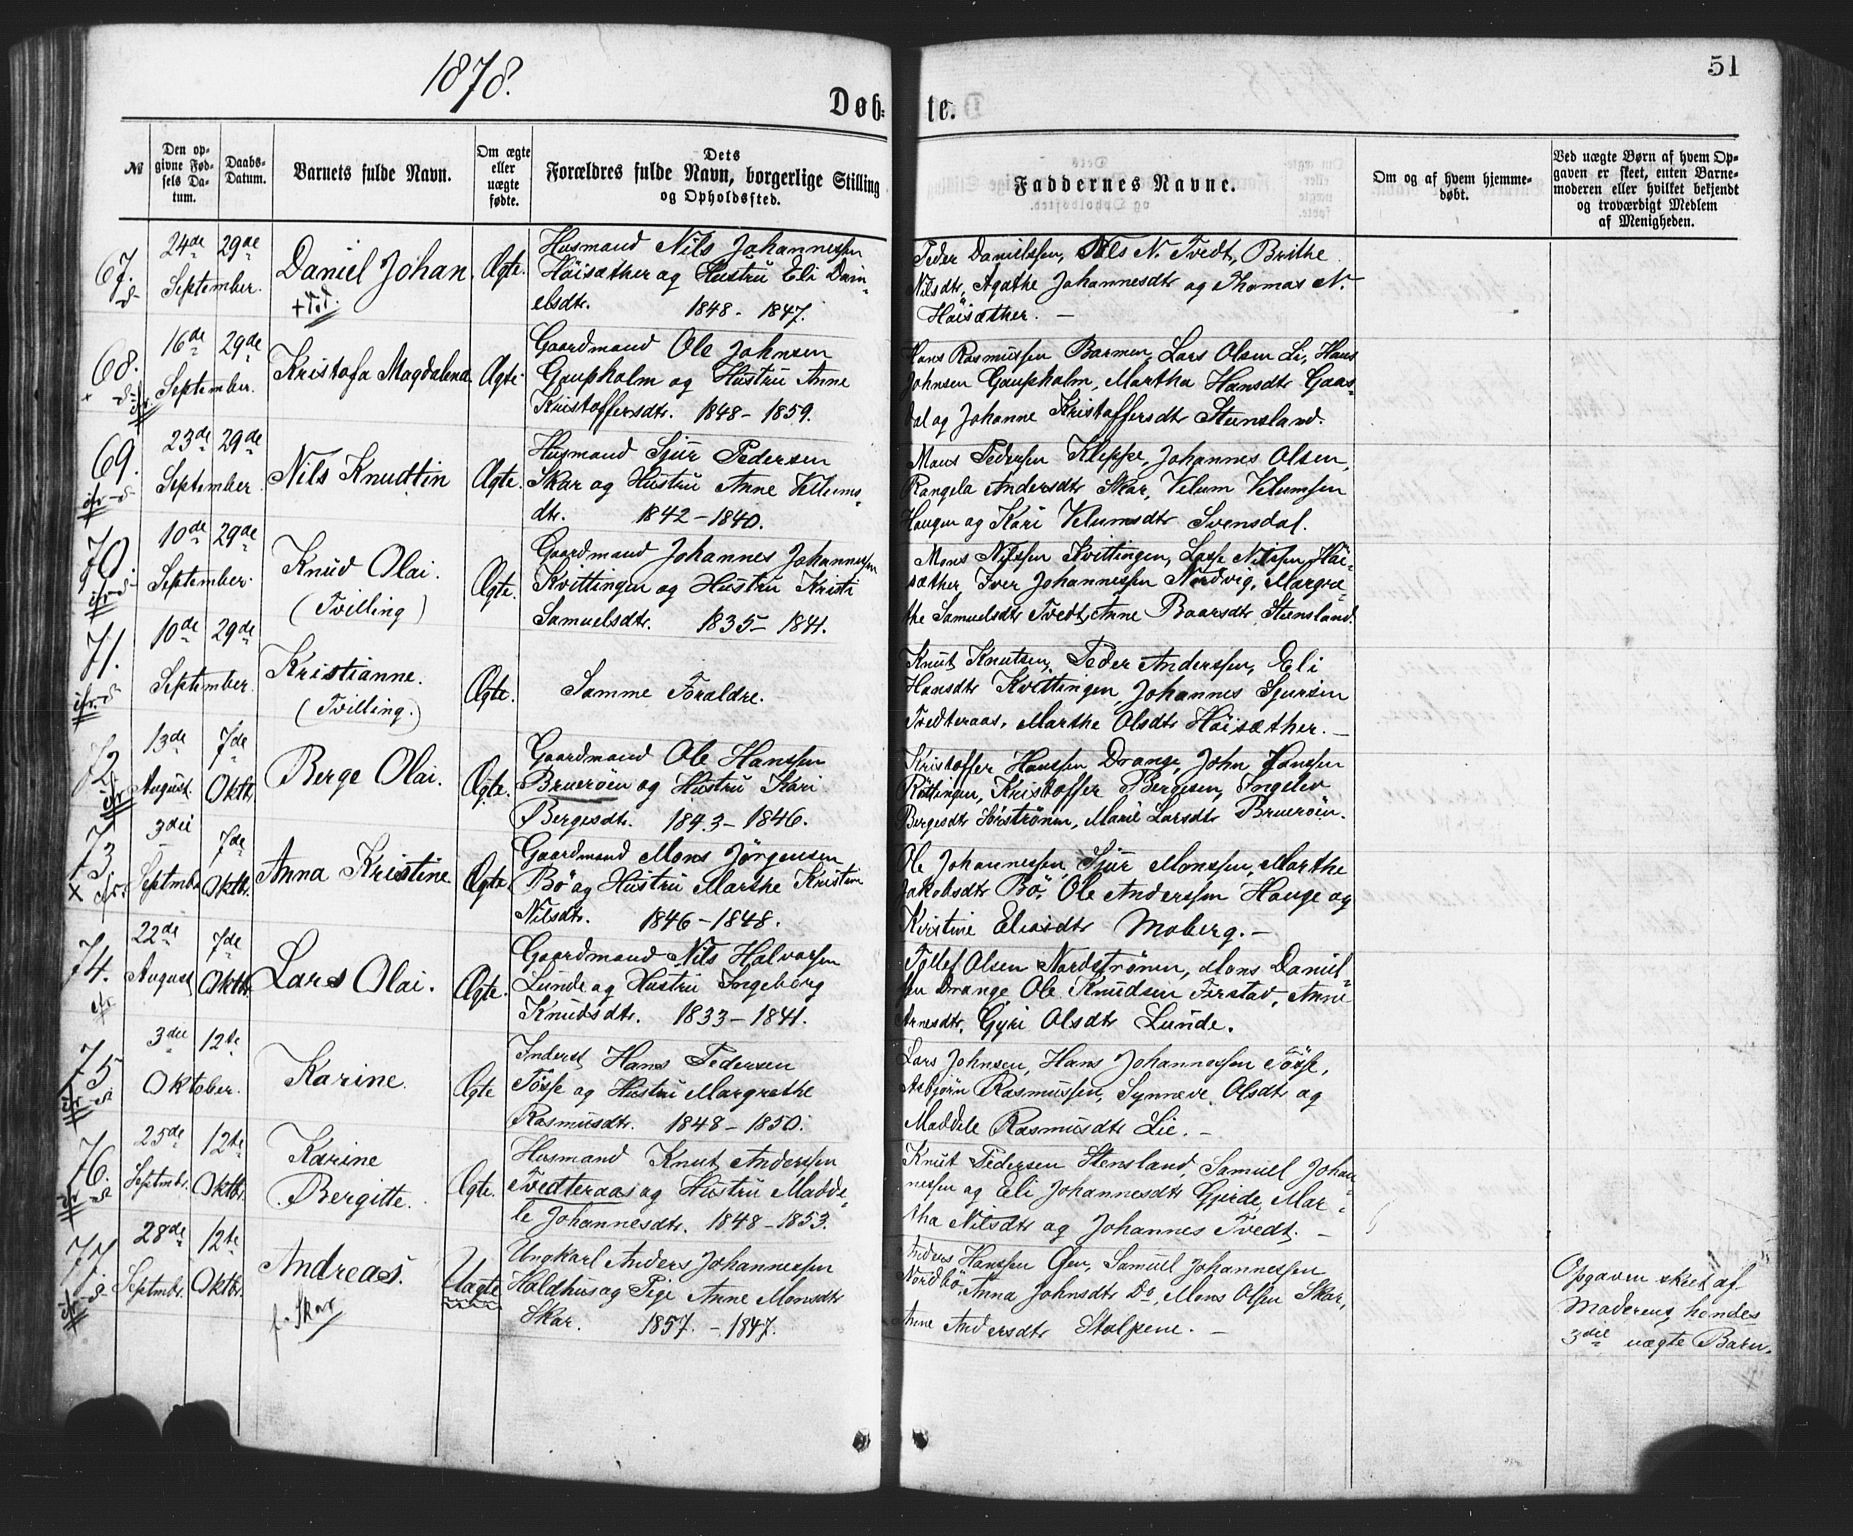 1878.
51
Døb-
te.
№
Den op-
givne Fød-
sels Da-
tum.
Daabs-
Datum.
Barnets fulde Navn.
Om ægte
eller
uægte
fødte.
Dets
Forældres fulde Navn, borgerlige Stilling
og Opholdssted.
Faddernes Navne.
Om og af hvem hjemme-
døbt.
Ved uægte Børn af hvem Op-
gaven er skeet, enten Barne-
moderen eller hvilket bekjendt
og troværdigt Medlem
af Menigheden.
67.
24de
September.
29de
Daniel Johan.
Ægte.
Husmand Nils Johannessen
Höisæther og Hustru Eli Dani-
elsdt. 1848 - 1847.
Peder Danielssen, Nils N. Tvedt, Brithe
Nilsdt, Agathe Johannesdtr og Thomas N.
Höisæther. -
68.
16de
September.
29de
Kristofa Magdalena
Ægte.
Gaardmand Ole Johnsen
Gaupholm og Hustru Anne
Kristoffersdtr. 1848 - 1859.
Hans Rasmussen Barmen, Lars Olsen Li, Hans
Johnsen Gaupholm, Martha Hansdtr Gaas-
dal og Johanne Kristoffersdt Stensland.
69.
23de
September
29de
Nils Knudtin
Ægte.
Husmand Sjur Pedersen
Skar og Hustru Anne Vellums-
dtr. 1842 - 1840.
Mons Pedersen Kleppe, Johannes Olsen,
Rangela Andersdt Skar, Velum Velumsen
Haugen og Kari Velumsdtr Svensdal.
70.
10de
September.
29de
Knud Olai.
(Tvilling)
Ægte.
Gaardmand Johannes Johannessen
Kvittingen og Hustru Kristi
Samuelsdtr. 1835 - 1841.
Mons Nilssen Kvittingen, Lasse Nilssen Höi-
sæther, Iver Johannessen Nordvig, Margre-
the Samuelsdt Tvedt, Anne Baarsdtr Stensland.
71.
10de
September.
29de
Kristianne.
(Tvilling.)
Ægte.
Samme Forældre.
Knut Knutsen, Peder Anderssen, Eli
Hansdtr Kvittingen, Johannes Sjursen
Tvedteraas, Marthe Olsdtr Höisæther. -
72.
13de
August.
7de
Oktb.
Berge Olai.
Ægte.
Gaardmand Ole Hanssen
Bruerøen og Hustru Kari
Bergesdtr. 1843 - 1846.
Kristoffer Hanssen Drange, John Hanssen
Röttingen, Kristoffer Bergesen, Ingelev
Bergesdtr Sörströnen, Marie Larsdtr Bruerøen.
73.
3die
Septmb.
7de
Oktbr.
Anna Kristine
Ægte
Gaardmand Mons Jörgensen
Bö og Hustru Marthe Kristine
Nilsdtr. 1846 - 1848.
Ole Johannessen, Sjur Monssen, Marthe
Jakobsdtr Bö, Ole Anderssen Hauge og
Kristine Eliasdt Moberg. -
74.
22de
August
7de
Oktbr.
Lars Olai.
Ægte.
Gaardmand Nils Halvorsen
Lunde og Hustru Ingeborg
Knudsdtr. 1833 - 1841.
Tollef Olsen Nordströnen, Mons Daniel-
sen Drange, Ole Knudsen Ferstad, Anne
Arnesdtr, Gyri Olsdtr Lunde.
75
3die
12te
Oktober.
Karine.
Ægte
Inderst Hans Pedersen
Tösse og Hustru Margrethe
Rasmusdtr. 1848 - 1850.
Lars Johnsen, Hans Johannessen Tösse,
Asbjörn Rasmussen, Synneve Olsdt og
Maddele Rasmusdtr Lie. -
76.
25de
Septmbr.
12te
Oktbr.
Karine
Bergitte.
Ægte.
Husmand Knut Anderssen
Tvedteraas og Hustru Madde-
le Johannesdtr. 1848 - 1853.
Knut Pedersen Stensland, Samuel Johan-
nessen og Eli Johannesdtr Gjerde, Mar-
tha Nilsdtr og Johannes Tvedt. -
77.
28de
Septmbr.
12te
Oktbr.
Andreas.
f. Skar
Uægte
Ungkarl Anders Johannessen
Haldhus og Pige Anne Monsdtr
Skar. 1857. - 1847.
Anders Hanssen Øen, Samuel Johannessen
Nordbö, Anna Johnsdtr Do, Mons Olsen Skar,
Anne Andersdtr Stolpene. -
Opgaven skeet af
Moderen, hendes
3die uægte Barn.